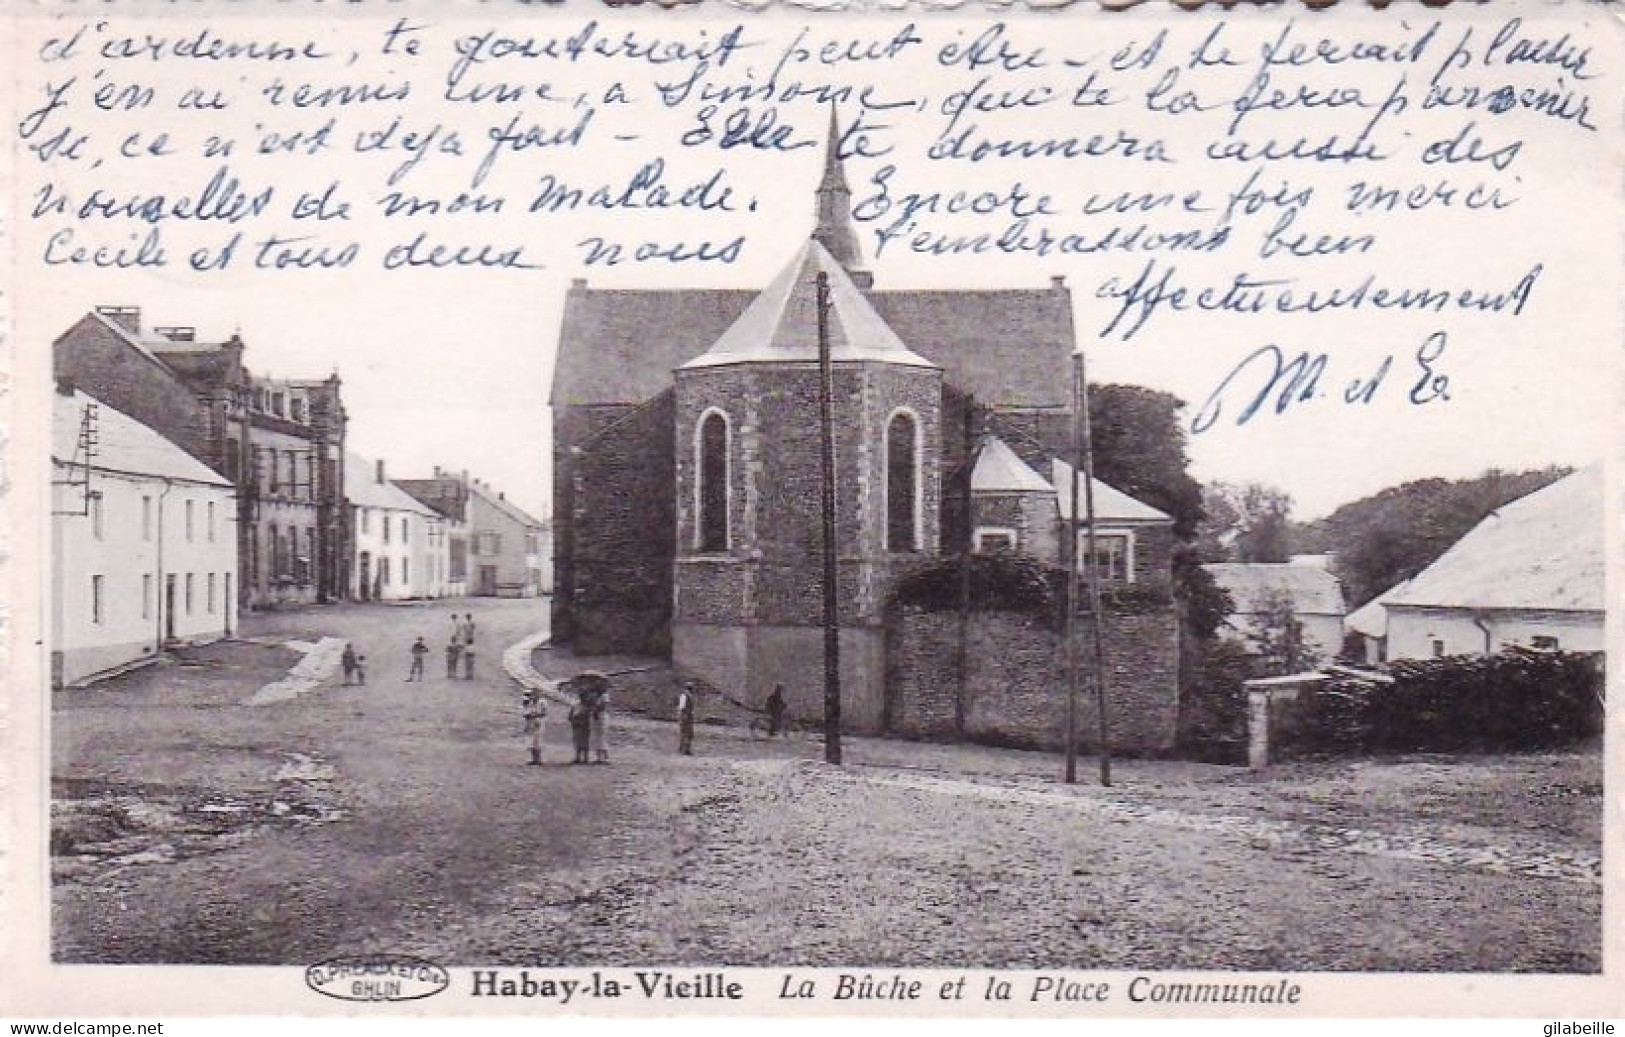 d'ardenne, te gouterait peut être - et te ferait plaisir
j'en ai remis une, a Simone, qui te la fera parvenir
si, ce n'est deja fait - Elle te donnera aussi des
nouvelles de mon malade. Encore une fois merci
Cecile et tous deux nous t'embrassons bien
affectueusement
M. et E.
D. PREAUX ET
GHLIN
Habay-la-Vieille La Bûche et la Place Communale
delcampe.net
gilabeille